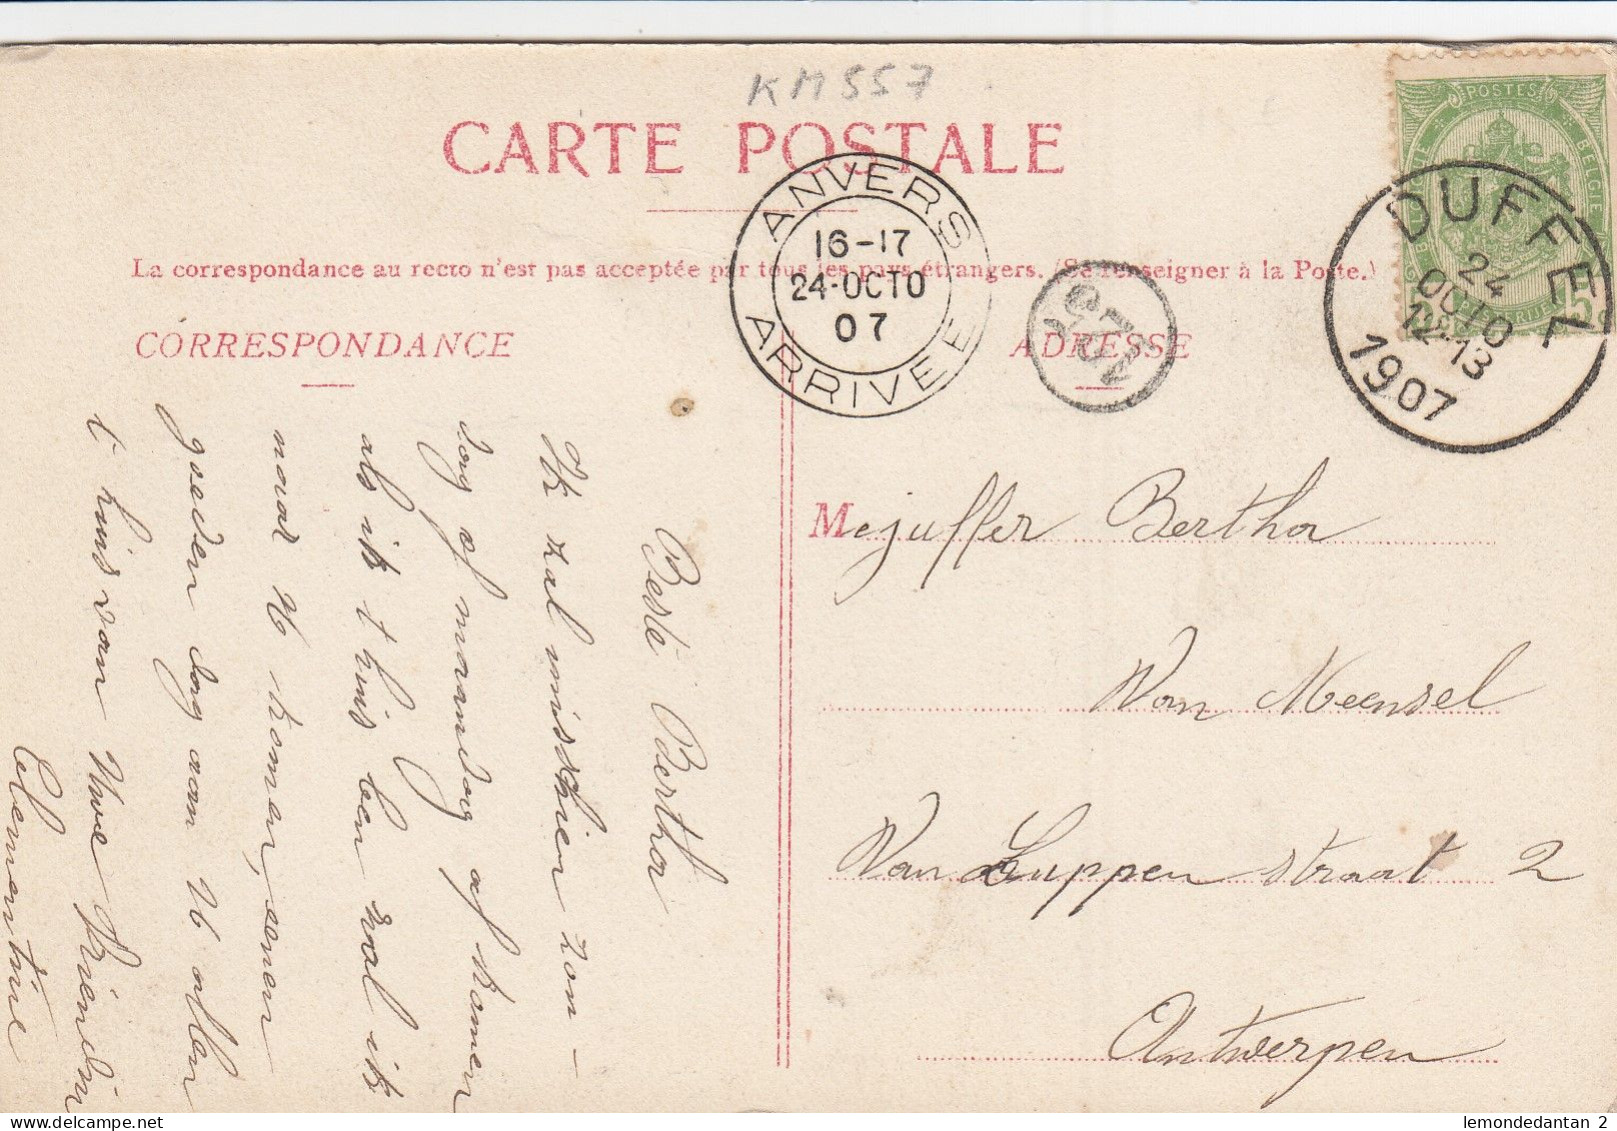 KM 557
CARTE POSTALE
La correspondance au recto n'est pas acceptée par tous les pays étrangers. (Se renseigner à la Poste.)
CORRESPONDANCE
ADRESSE
ANVERS
16-17
24-OCTO
07
ARRIVEE
POSTES
BELGIQUE
BELGIE
5
DUFFEL
24
OCTO
12-13
1907
Beste Bertha
Ik zal misschien zon-
dag of maandag afkomen
als ik t huis ben zal ik
naar U komen, eenen
goeden dag aan U allen
t huis van Uwe Vriendin
Clemantine
Mejuffer Bertha
Van Meensel
Van Luppen straat 2
Antwerpen
lemondedantan 2